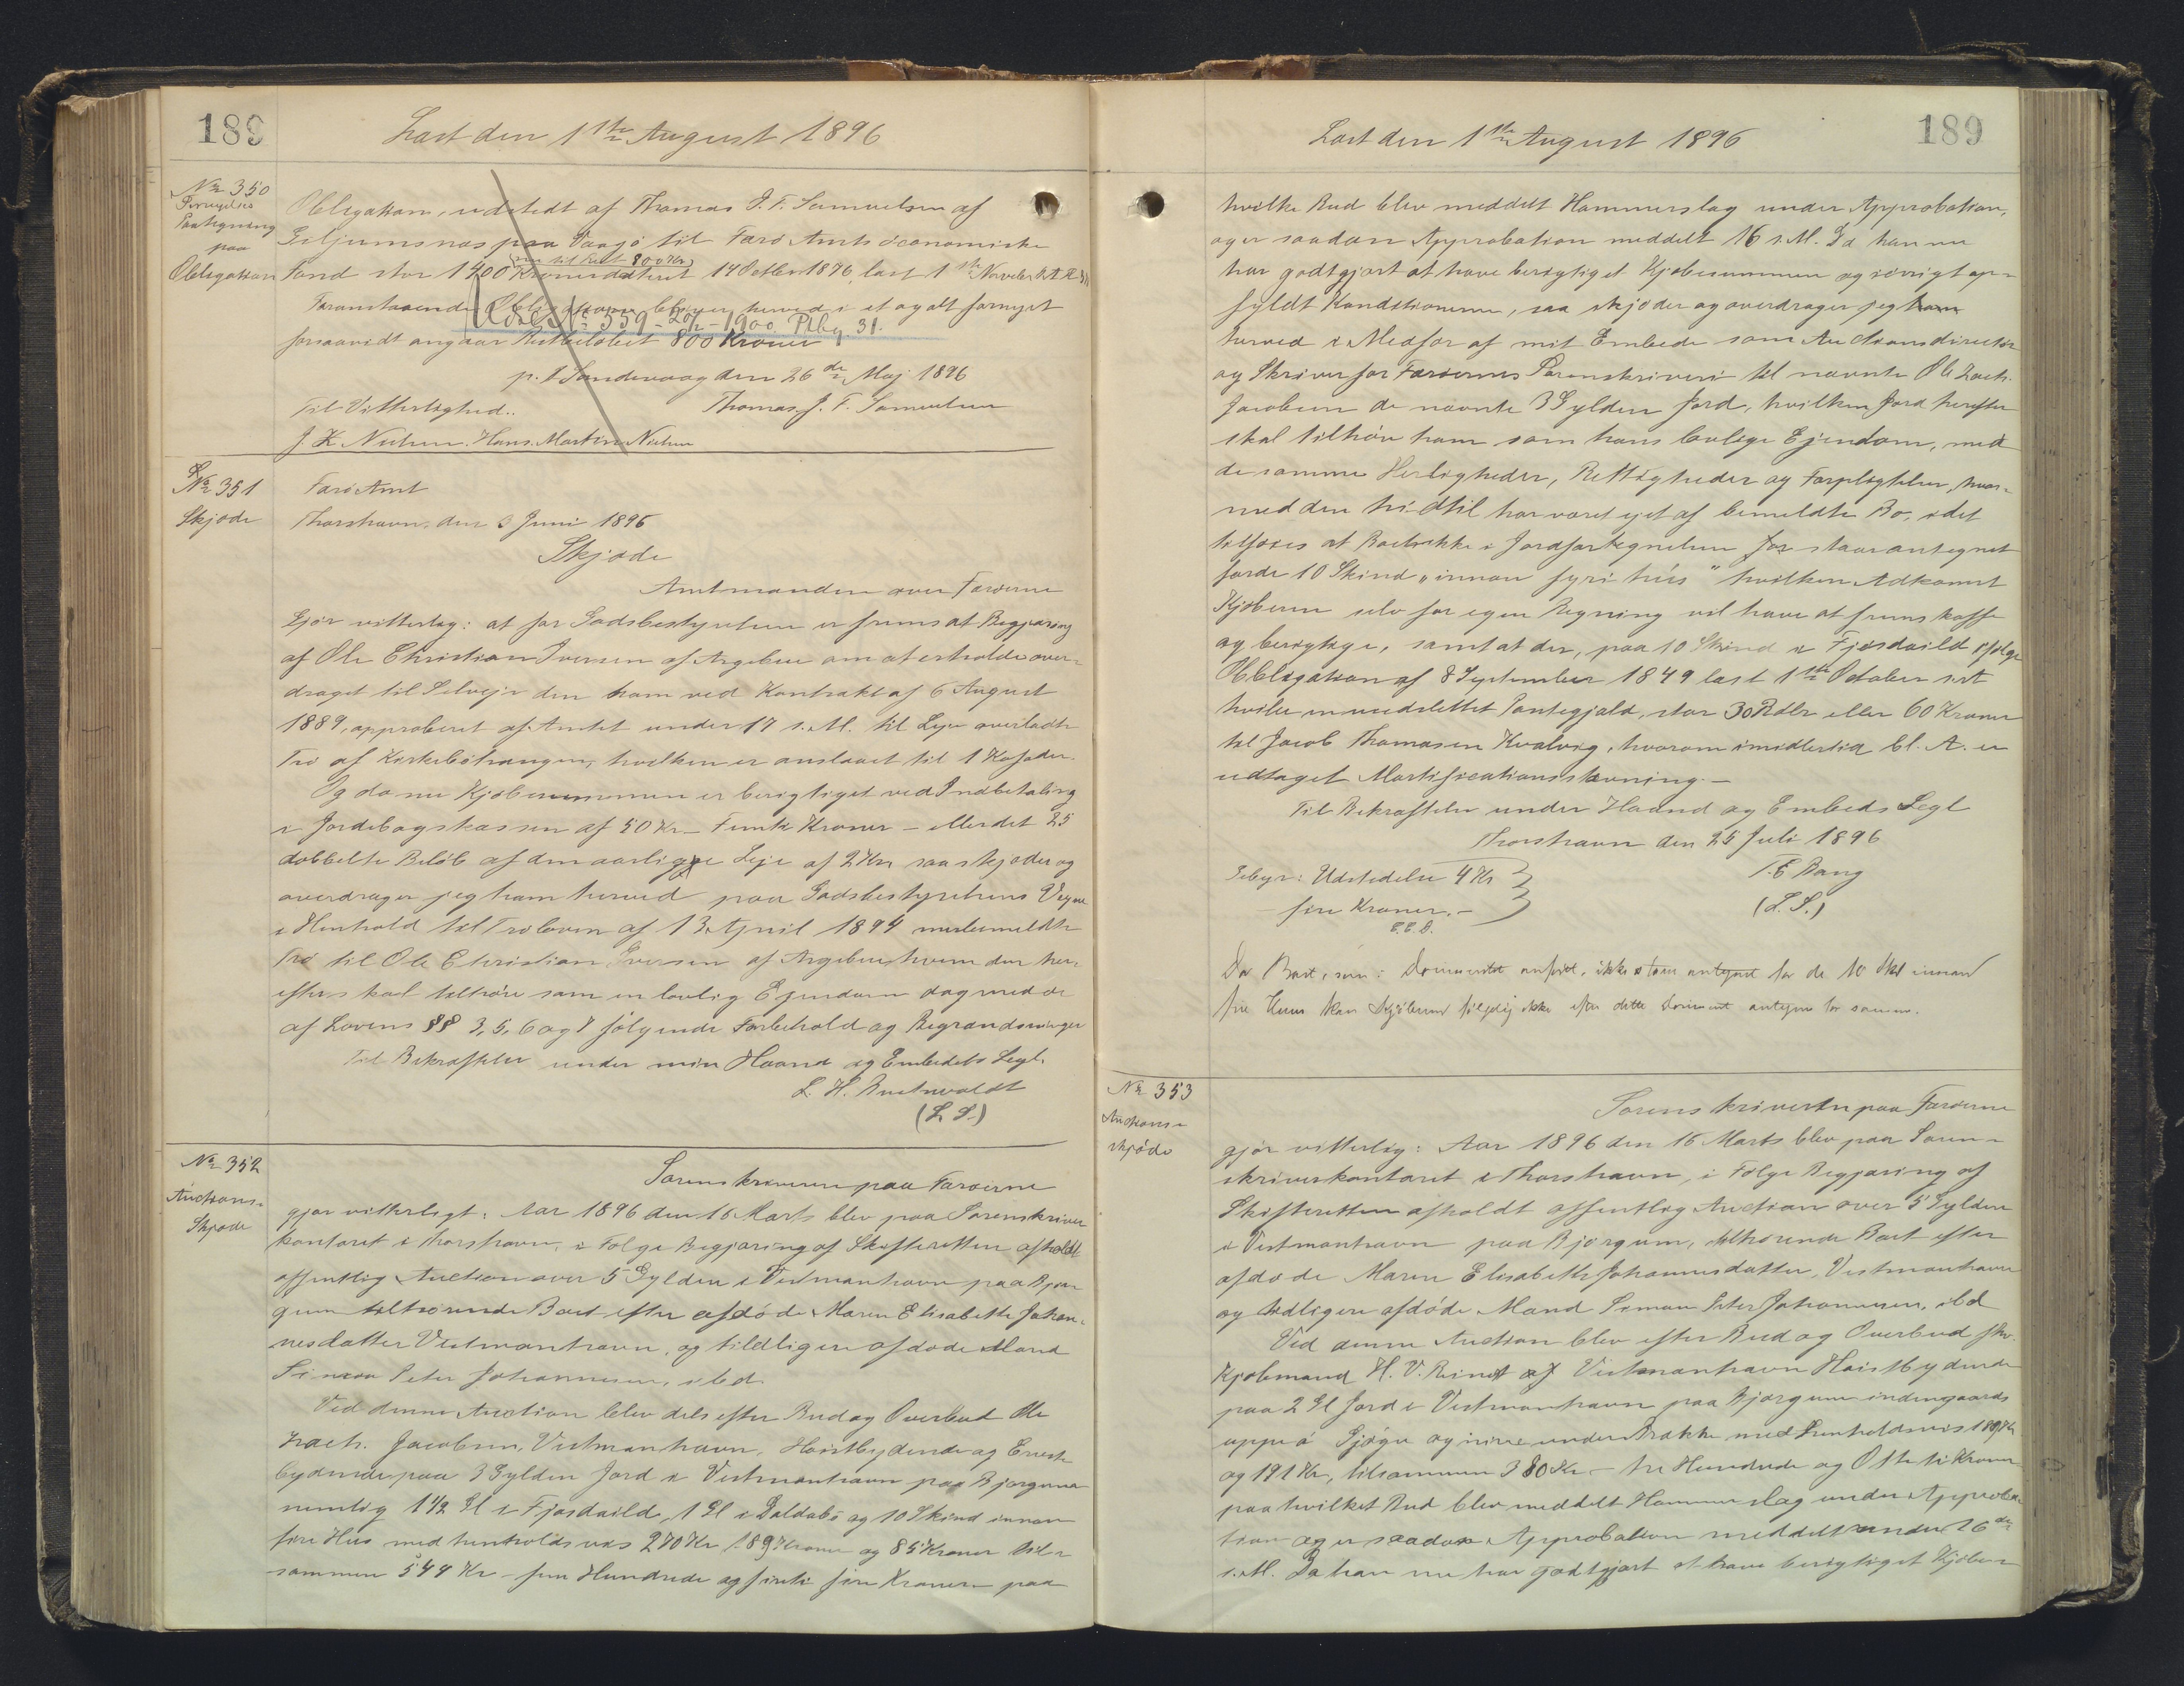 189
Læst den 1ste August 1896
No 350
Fornyelses
Paategning
paa
Obligation
Obligation, udstedt af Thomas J. F. Samuelsen af
Giljumsnæs paa Vaagø til Færø Amts öconomiske
nu til Rest 800 Kr
Fond stor 1400 Kroner dateret 14 October 1876, læst 1ste November
Foranstaaende Obligation bliver herved i et og alt fornyet
Udsl. No 359 - 20/2 - 1900. Ptbg. 31.
forsaavidt angaar Restbeløbet 800 Kroner
p. t. Sandevaag den 26de Maj 1896
Til Vitterlighed.. Thomas J. F. Samuelsen
J. K. Nielsen. Hans Martin Nielsen
No 351
Skjøde
Færø Amt
Thorshavn, den 3 Juni 1896
Skjøde
Amtmanden over Færøerne
Gjør vitterlig: at for Godsbestyrelsen er fremsat Begjæring
af Ole Christian Iversen af Argebøur om at erholde over-
draget til Selveje den ham ved Kontrakt af 6 August
1889, approberet af Amtet under 17 s. M. til Leje overladte
Trø af Kirkebøhaugen, hvilken er anslaaet til 1 Kofoder.
Og da nu Kjøbesummen er berigtiget ved Indbetaling
i Jordebogskassen af 50 Kr - Femti Kroner - eller det 25
dobbelte Beløb af den aarlige Leje af 2 Kr saa skjøder og
overdrager jeg ham herved paa Godsbestyrelsens Vegne
i Henhold til Trøloven af 13 April 1894 merbemeldte
Trø til Ole Christian Iversen af Argebøur hvem den her-
efter skal tilhøre som en lovlig Ejendom dog med de
af Lovens §§ 3, 5, 6 og 7 følgende Forbehold og Begrændsninger
Til Bekræftelse under min Haand og Embedets Segl.
L. H. Buchwaldt
(L. S.)
No 352
Auctions-
Skjøde
Sorenskriveren paa Færøerne
gjør vitterligt: Aar 1896 den 16 Marts blev paa Sorenskriver
kontoret i Thorshavn, i Følge Begjæring af Skifteretten afholdt
offentlig Auction over 5 Gylden i Vestmanhavn paa Bjør-
gum tilhørende Boet efter afdøde Maren Elisabeth Johan-
nesdatter Vestmanhavn, og tildligere afdøde Mand
Simon Peter Johannesen, ibd.
Ved denne Auction blev dels efter Bud og Overbud Ole
Zach. Jacobsen, Vestmanhavn, Høistbydende og Eneste
bydende paa 3 Gylden Jord i Vestmanhavn paa Bjørgum
nemlig 1 1/2 Gl i Fjøsdeild, 1 Gl i Daldabø og 10 Skind innan
fire Hus med henholdsvis 270 Kr 189 Kroner og 85 Kroner til-
sammen 544 Kr - fem Hundrede og firti fire Kroner paa
Læst den 1ste August 1896
189
hvilke Bud blev meddelt Hammerslag under Approbation,
og er saadan Approbation meddelt 16 s. M. Da han nu
har godtgjort at have berigtiget Kjøbesummen og iøvrigt op-
fyldt Konditionerne, saa skjøder og overdrager jeg ham
herved i Medfør af mit Embede som Auctionsdirectør
og Skriver for Færøernes Sorenskriveri til nævnte Ole Zach.
Jacobsen de nævnte 3 Gylden Jord, hvilken Jord herefter
skal tilhøre ham som hans lovlige Ejendom, med
de samme Herligheder, Rettigheder og Forpligtelser, hvor-
med den hidtil har været ejet af bemeldte Bo, idet
tilføies at Boet ikke i Jordfortegnelsen for staar antegnet
for de 10 Skind "innan fyri hús" hvilken Adkomst
Kjøberen selv for egen Regning vil have at fremskaffe
og berigtige, samt at der, paa 10 Skind i Fjøsdeild ifølge
Obligation af 8 September 1849 læst 1ste October
hviler en uudslettet Pantegjæld, stor 30 Rdlr eller 60 Kroner
til Jacob Thomasen Kvalvig, hvorom imidlertid bl. A. er
udtaget Mortificationsstævning. -
Til Bekræftelse under Haand og Embeds Segl
Thorshavn den 25 Juli 1896
Gebyr: Udstedelse 4 Kr
fire Kroner. -
E.E.B.
E Bang
(L. S.)
Da Boet, som i Documentet anført, ikke staar antegnet for de 10 Skd innan
fire Huus kan Kjøberen følgelig ikke efter dette Document antegnes for samme.
No 353
Auctions-
skjøde
Sorenskriveren paa Færøerne
gjør vitterlig: Aar 1896 den 16 Marts blev paa Soren-
skriverkontoret i Thorshavn, i Følge Begjæring af
Skifteretten afholdt offentlig Auction over 5 Gylden
i Vestmanhavn paa Bjørgum, tilhørende Boet efter
afdøde Maren Elisabeth Johannesdatter, Vestmanhavn
og tidligere afdøde Mand Simon Peter Johannesen, ibd
Ved denne Auction blev efter Bud og Overbud
Kjøbmand H. V. af Vestmanhavn Høistbydende
paa 2 Gl Jord i Vestmanhavn paa Bjørgum indengaards
uppe á Gjógv og under Brække med henholdsvis 189 Kr
og 191 Kr, tilsammen 380 Kr - tre Hundrede og Otte ti Kroner
paa hvilket Bud blev meddelt Hammerslag under Approba-
tion og er saadan Approbation meddelt under 16de
s. M. Da han nu har godtgjort at have berigtiget Kjøbe-